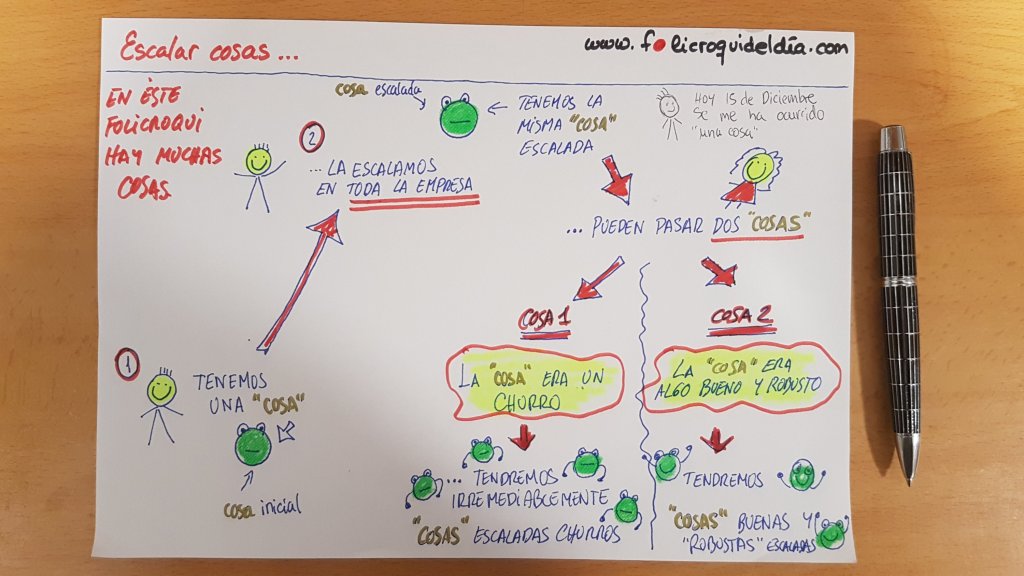 Escalar cosas...
www.folicroquideldía.com
EN ÉSTE
FOLICROQUI
HAY MUCHAS
COSAS
1
TENEMOS
UNA "COSA"
cosa inicial
2
...LA ESCALAMOS
EN TODA LA EMPRESA
cosa escalada
TENEMOS LA
MISMA "COSA"
ESCALADA
HOY 15 de Diciembre
Se me ha ocurrido
"una cosa"
... PUEDEN PASAR DOS "COSAS"
COSA 1
LA "COSA" ERA UN
CHURRO
... TENDREMOS
IRREMEDIABLEMENTE
"COSAS" ESCALADAS CHURROS
COSA 2
LA "COSA" ERA
ALGO BUENO Y ROBUSTO
TENDREMOS
"COSAS" BUENAS Y
"ROBUSTAS" ESCALADAS